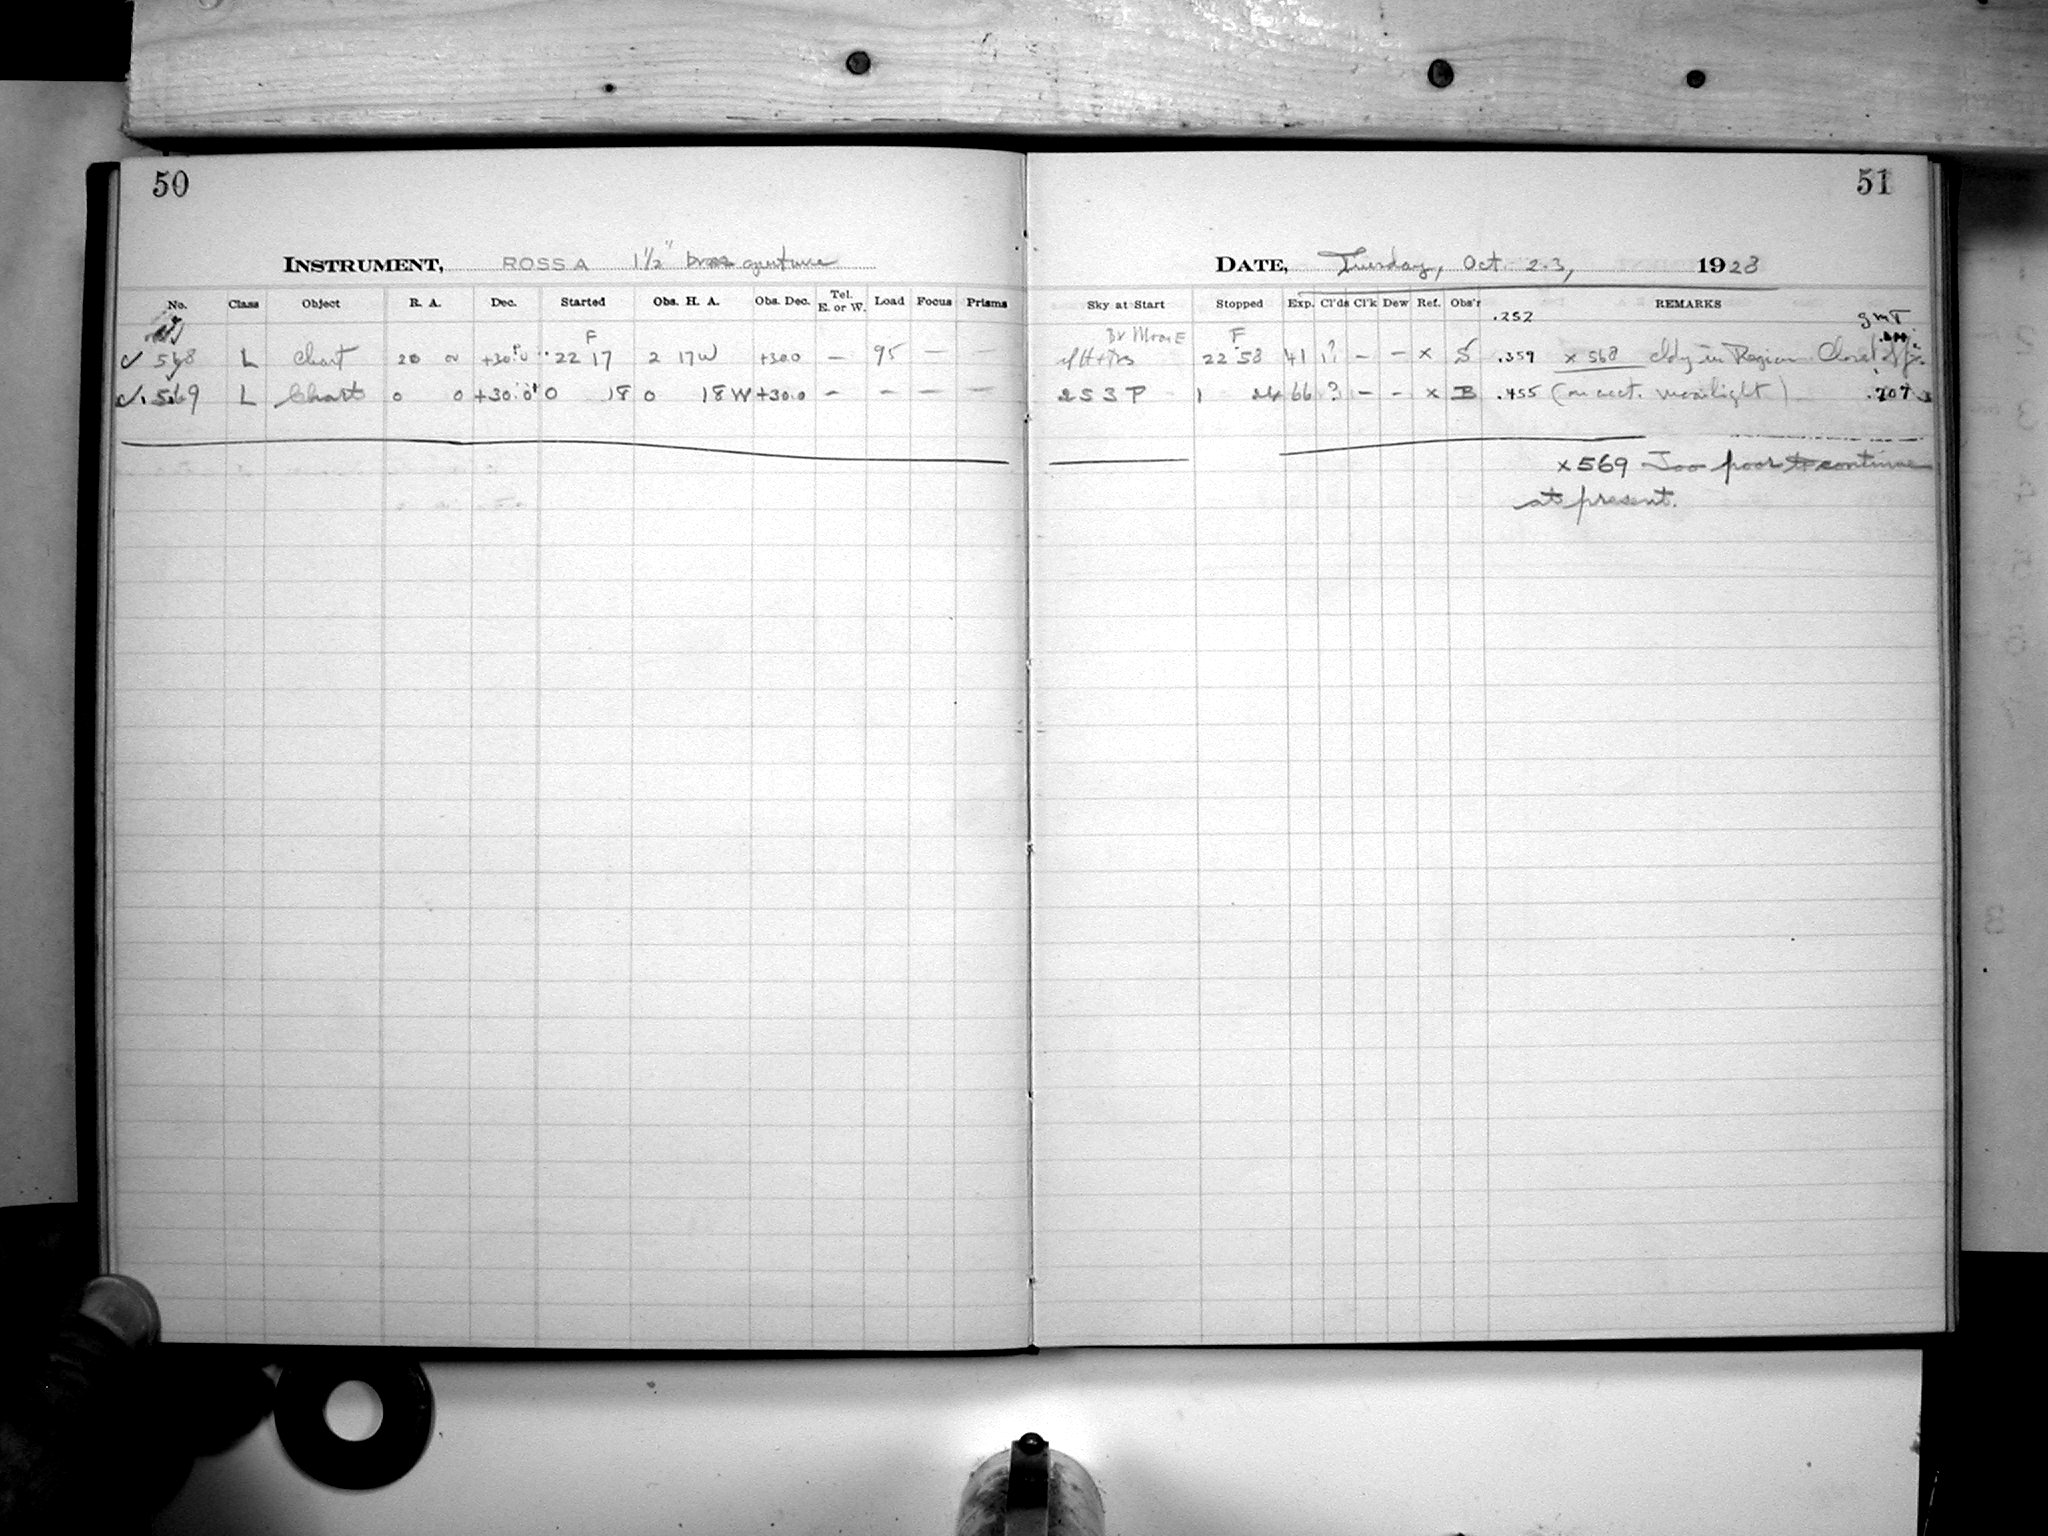 50
INSTRUMENT, ROSS A 1½" aperture
No. Class Object R. A. Dec. Started Obs. H. A. Obs. Dec. Tel. E. or W. Load Focus Prisms
F
✓ 568 L Chart 20 0 +30°0' 22 17 2 17W +30.0 — 95 — —
✓ 569 L Chart 0 0 +30°0' 0 18 0 18 W +30.0 — — — —
51
DATE, Tuesday, Oct. 23, 1928
Sky at Start Stopped Exp. Cl'ds Cl'k Dew Ref. Obs'r REMARKS
.252 GMT
Br Moon E F
22 58 41 ? — — x S .359 x 568 cldy in Region Closed
2 S 3 P 1 24 66 ? — — x B .455 (on acct. moonlight) .707
x 569 Too poor to continue
at present.